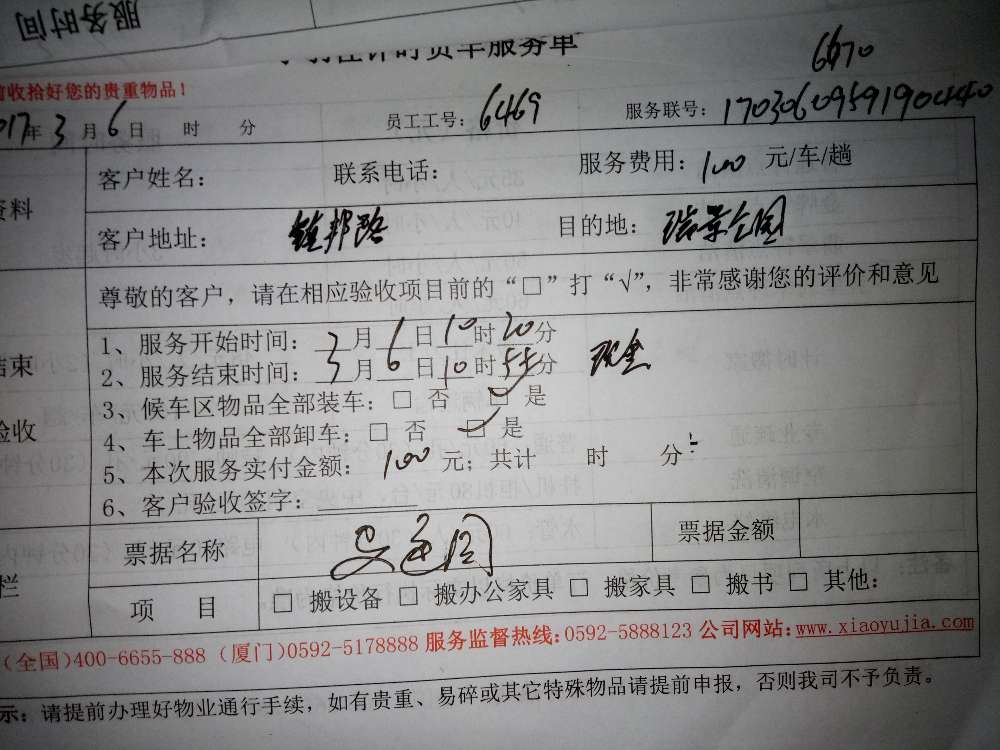 服务时间
计时货车服务单
前收拾好您的贵重物品！
6670
2017年3月6日 时 分 员工工号：6469 服务联号：17030609591900440
客户姓名： 联系电话： 服务费用：100 元/车/趟
资料
客户地址：镇邦路 目的地：瑞景公园
尊敬的客户，请在相应验收项目前的“□”打“√”，非常感谢您的评价和意见
1、服务开始时间：3月6日10时20分
2、服务结束时间：3月6日10时55分 现金
结束
3、候车区物品全部装车：□ 否 ☑ 是
4、车上物品全部卸车：□ 否 ☑ 是
验收
5、本次服务实付金额：100 元；共计 时 分
6、客户验收签字：
票据名称 票据金额
栏
项 目 □ 搬设备 □ 搬办公家具 □ 搬家具 □ 搬书 □ 其他：
(全国)400-6655-888 (厦门)0592-5178888 服务监督热线：0592-5888123 公司网站：www.xiaoyujia.com
示：请提前办理好物业通行手续，如有贵重、易碎或其它特殊物品请提前申报，否则我司不予负责。